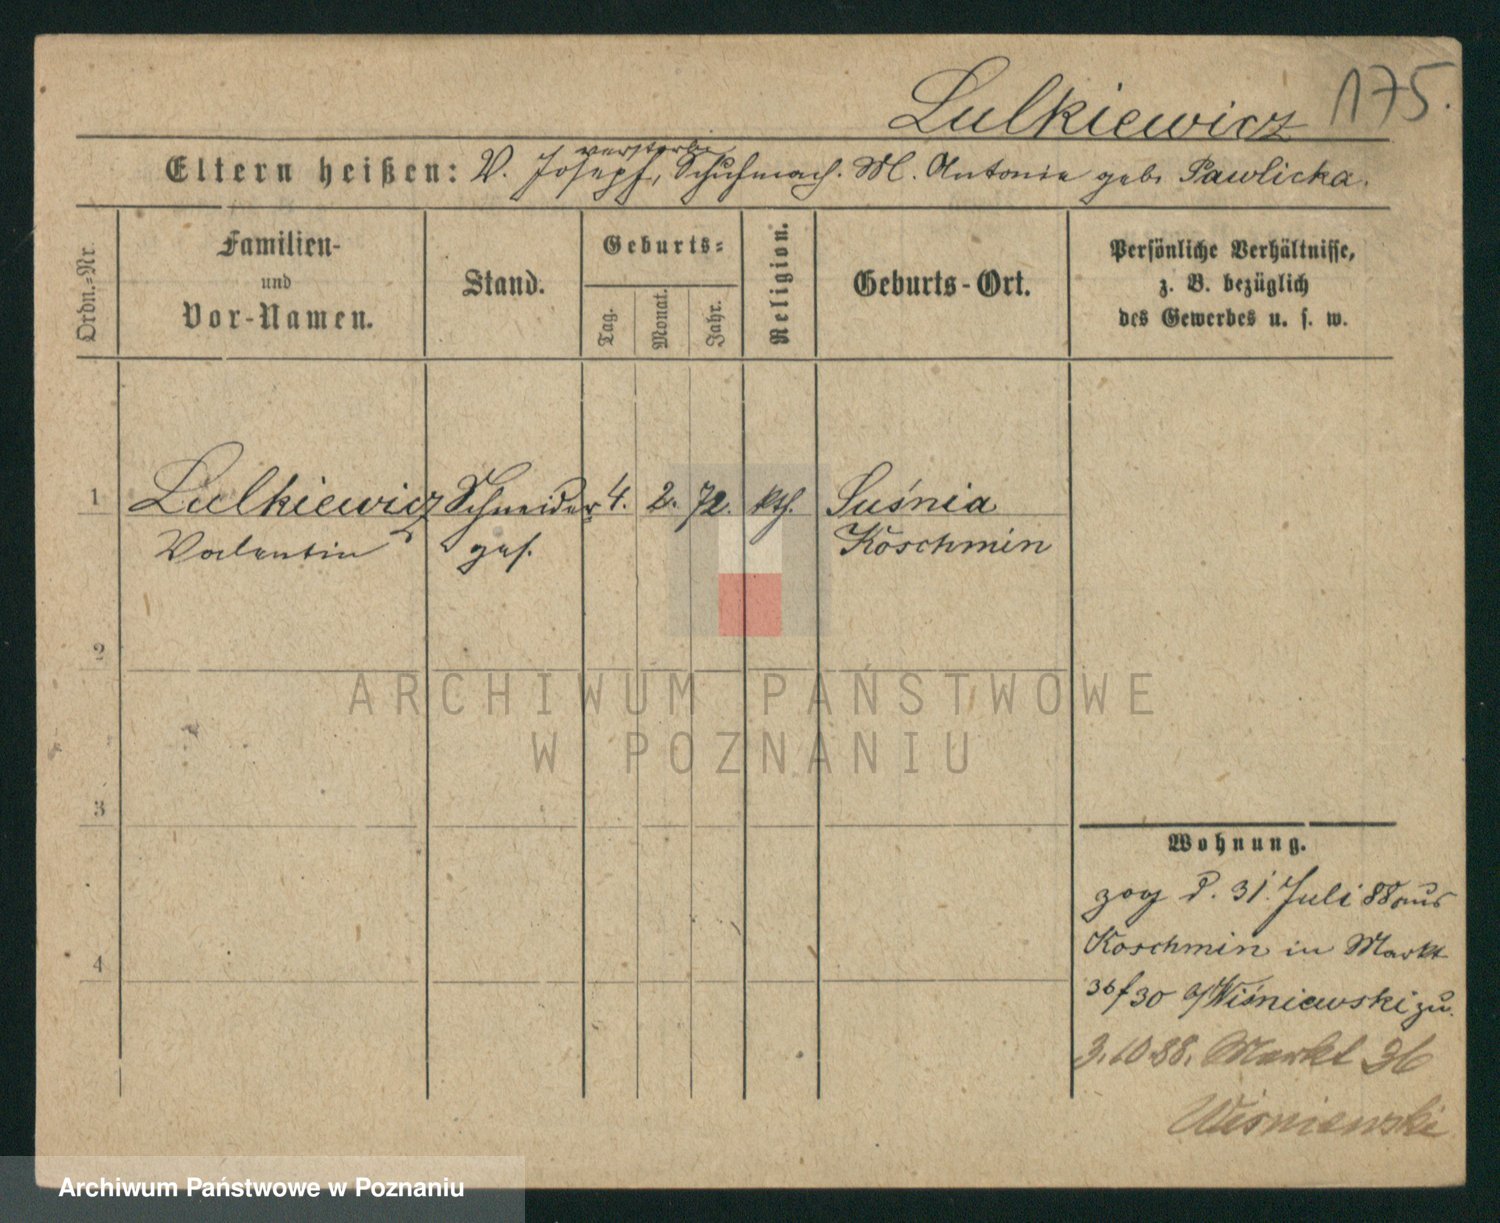 Lulkiewicz 175.
verstorben
Eltern heißen: V. Joseph, Schuhmach. M. Antonie geb. Pawlicka.
Ordn.-Nr.
Familien-
und
Vor-Namen.
Stand.
Geburts-
Tag.
Monat.
Jahr.
Religion.
Geburts-Ort.
Persönliche Verhältnisse,
z. B. bezüglich
des Gewerbes u. s. w.
1 Lulkiewicz Schneider 4. 2. 72. kth. Suśnia
Valentin ges. Koschmin
2
3
4
Wohnung.
zog d. 31. Juli 88 aus
Koschmin in Markt
36/30 Wiśniewski zu.
3.10.88. Markt 36
Wisniewski
ARCHIWUM PAŃSTWOWE
W POZNANIU
Archiwum Państwowe w Poznaniu